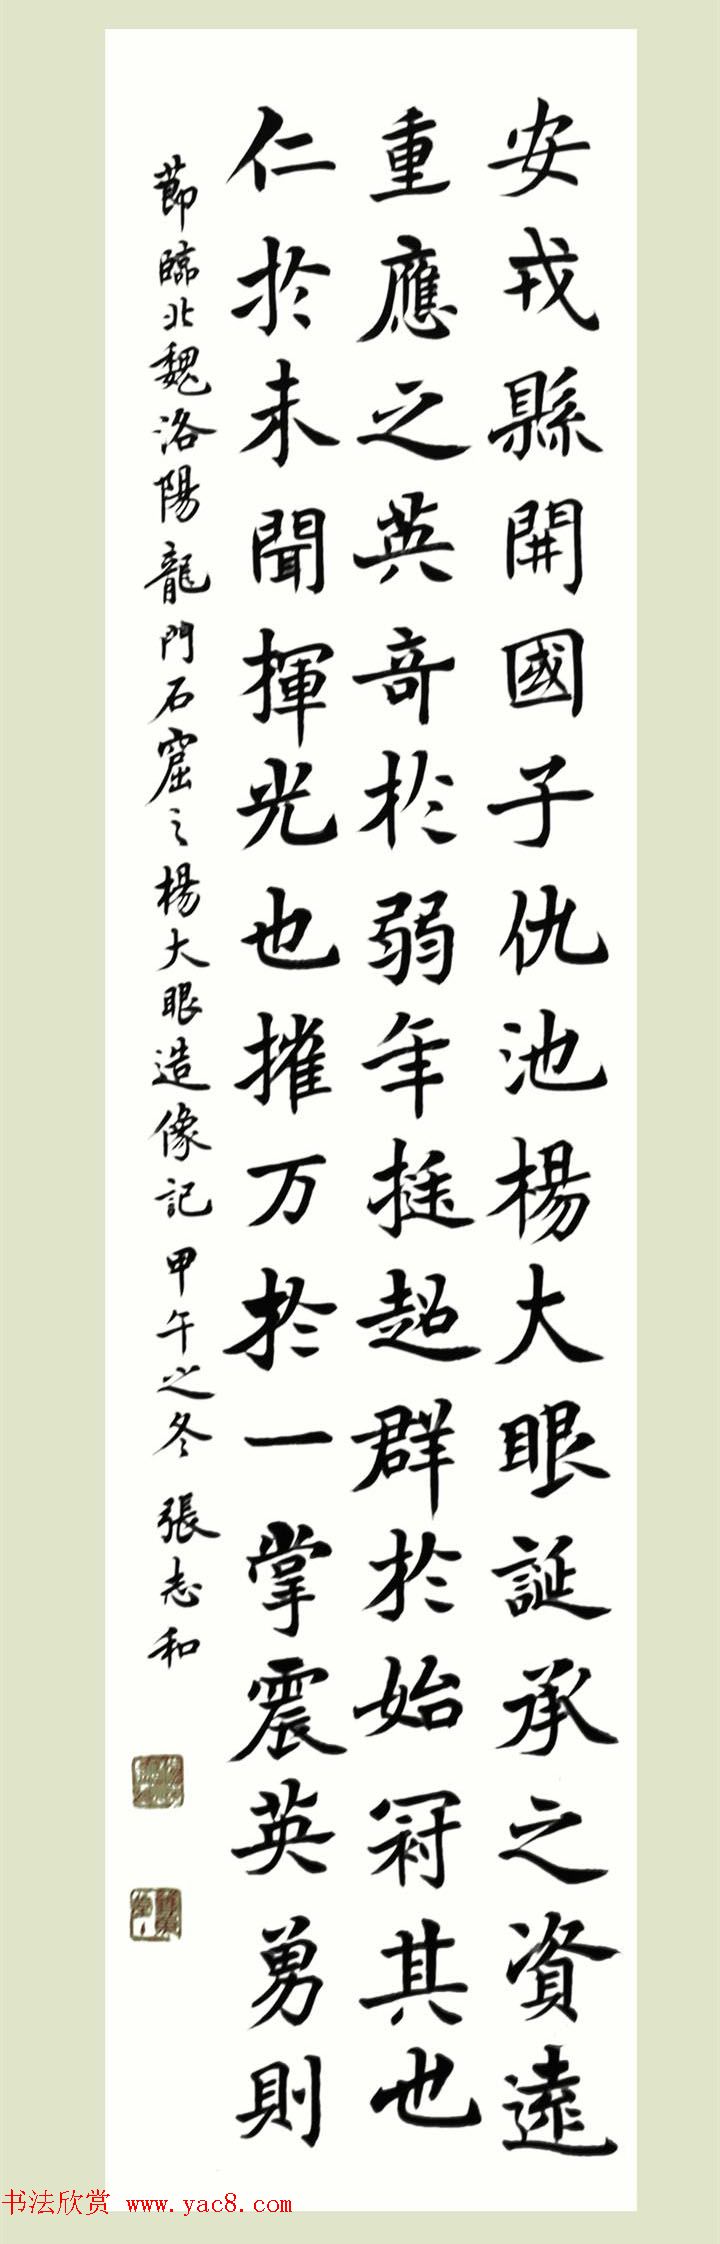 安戎縣開國子仇池楊大眼誕承之資遠
重應之英奇於弱年挺超群於始冠其也
仁於未聞揮光也摧万於一掌震英勇則
節臨北魏洛陽龍門石窟之楊大眼造像記 甲午之冬 張志和
书法欣赏 www.yac8.com